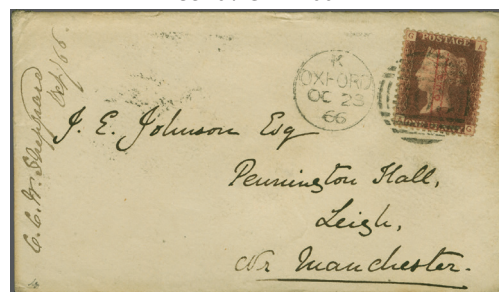 C. C. W. Sheppard
Oct/66.
K
OXFORD
OC 23
66
G POSTAGE A
J. E. Johnson Esq
Pennington Hall,
Leigh,
Nr Manchester.